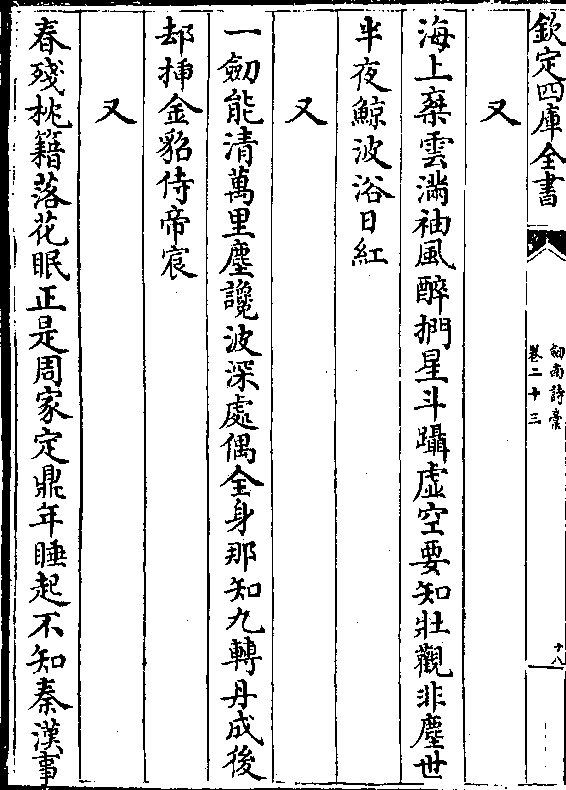 欽定四庫全書
劒南詩藁
卷二十三
十八
又
海上乗雲滿袖風醉捫星斗躡虚空要知壯觀非塵世
半夜鯨波浴日紅
又
一劒能清萬里塵讒波深處偶全身那知九轉丹成後
却揷金貂侍帝宸
又
春殘枕籍落花眠正是周家定鼎年睡起不知秦漢事